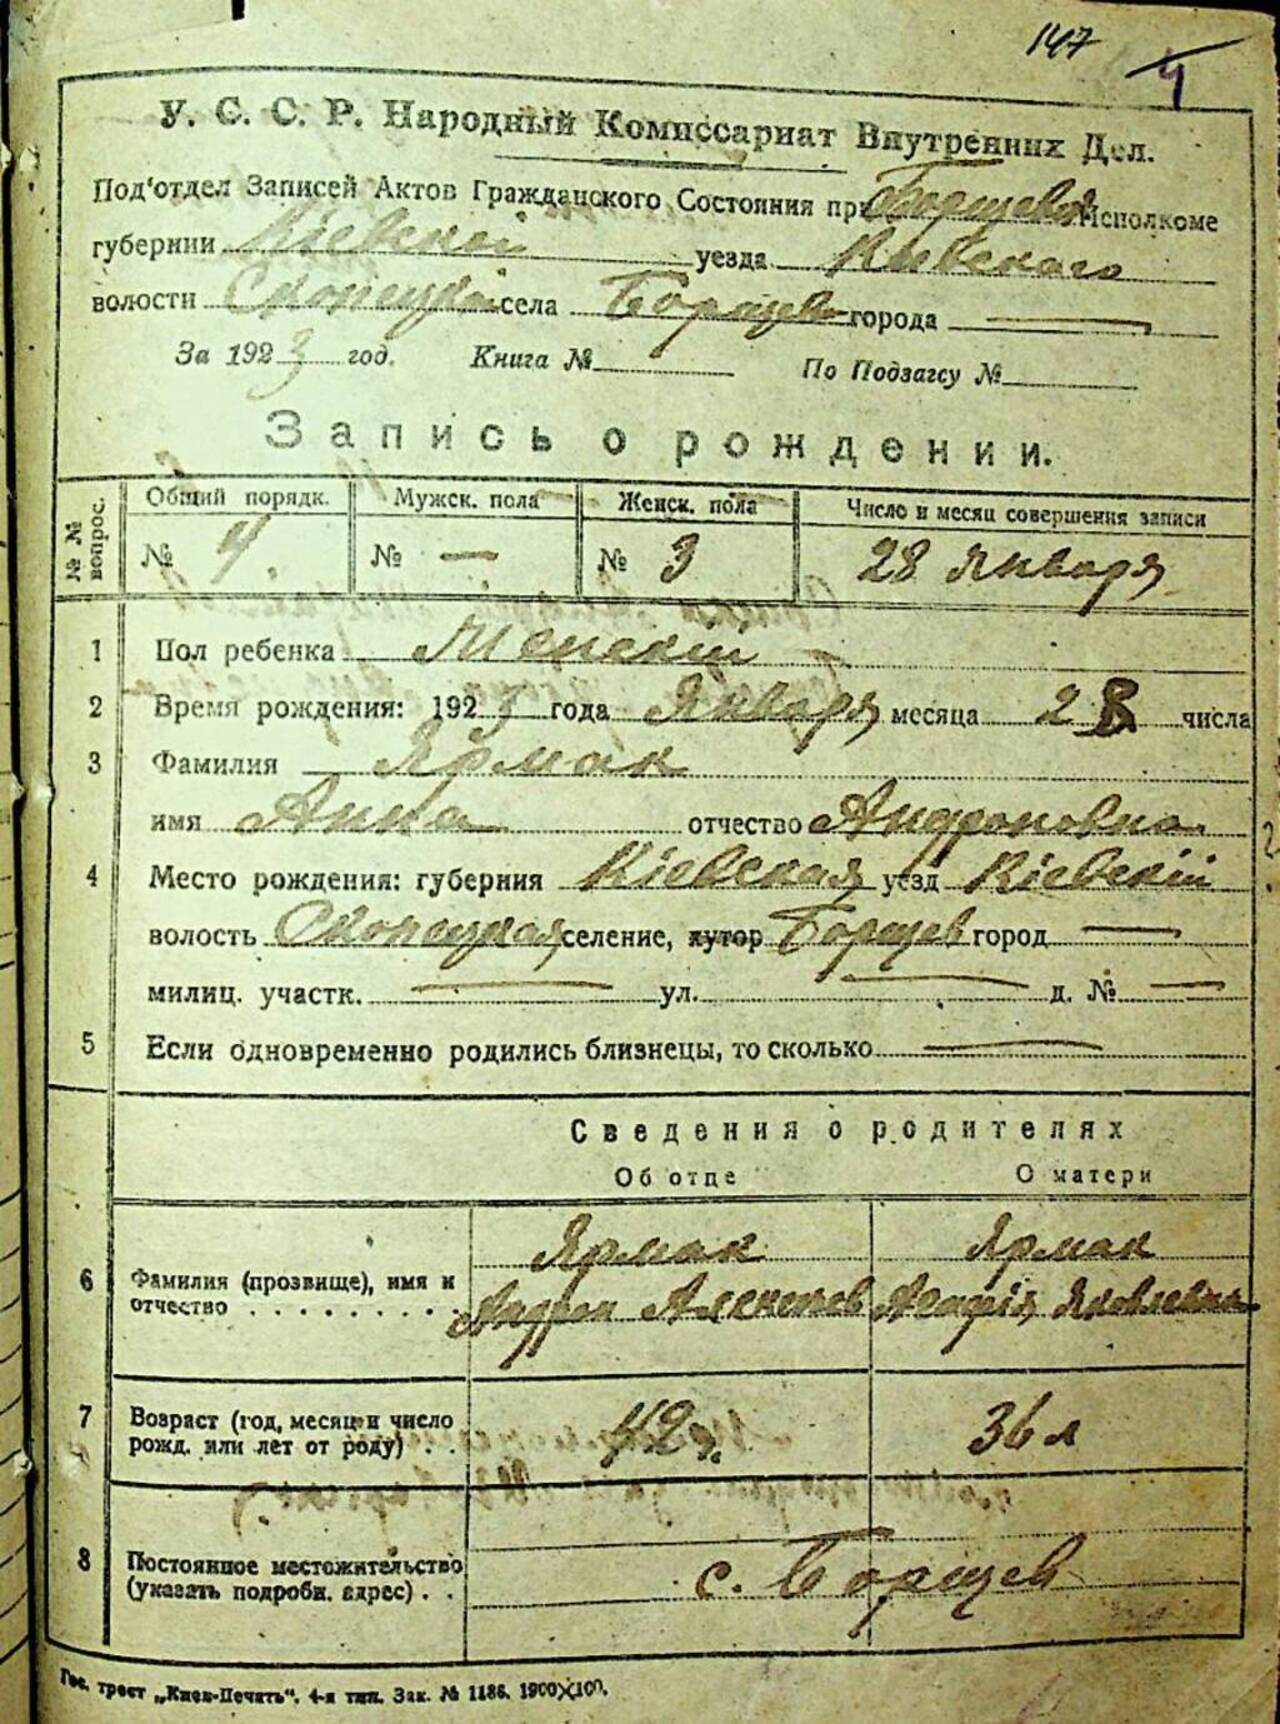 147 4
У. С. С. Р. Народный Комиссариат Внутренних Дел.
Под'отдел Записей Актов Гражданского Состояния при Борщевск Исполкоме
губернии Кіевской уезда Киевскаго
волости Скопецкой села Борщев города —
За 1923 год. Книга № По Подзагсу №
Запись о рождении.
№ № вопрос. Общий порядк. Мужск. пола Женск. пола Число и месяц совершения записи
№ 4. № — № 3 28 Января
1 Пол ребенка Женскій
2 Время рождения: 1923 года Января месяца 28 числа
3 Фамилия Ярмак
имя Анна отчество Андроновна
4 Место рождения: губерния Кіевская уезд Кіевскій
волость Скопецкая селение, хутор Борщев город —
милиц. участк. — ул. — д. № —
5 Если одновременно родились близнецы, то сколько —
Сведения о родителях
Об отце О матери
Ярмак Ярмак
6 Фамилия (прозвище), имя и
отчество . . . . . . . . . Андрон Алексеев Агафія Яковлевна
7 Возраст (год, месяц и число
рожд. или лет от роду) . . 42 г. 36 л
8 Постоянное местожительство
(указать подробн. адрес) . . с. Борщев
Гос. трест „Киев-Печать“. 4-я тип. Зак. № 1186. 1900×100.